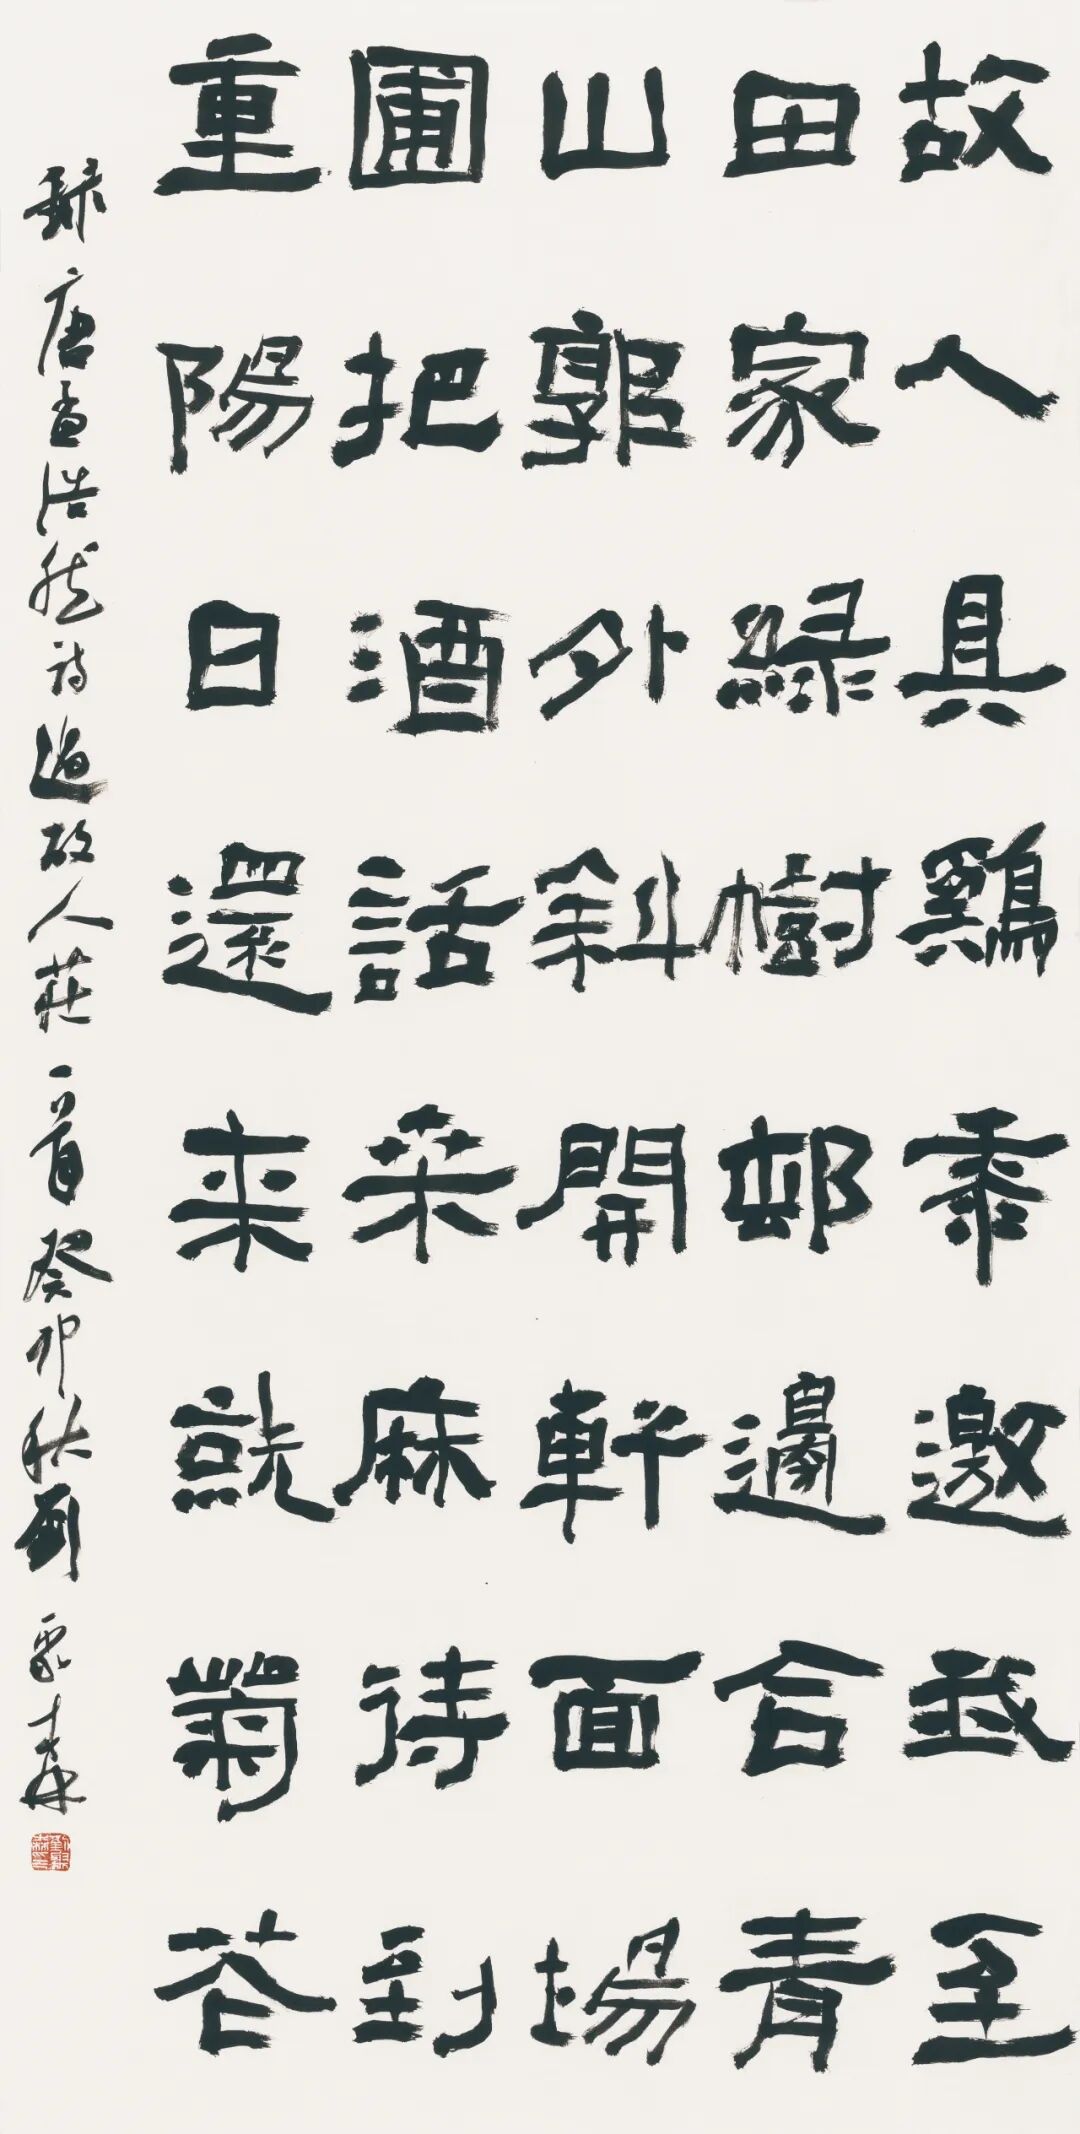 故人具鷄黍邀我至
田家綠樹邨邊合青
山郭外斜開軒面場
圃把酒話桑麻待到
重陽日還来就菊花
録唐孟浩然詩過故人莊一首癸卯秋劉